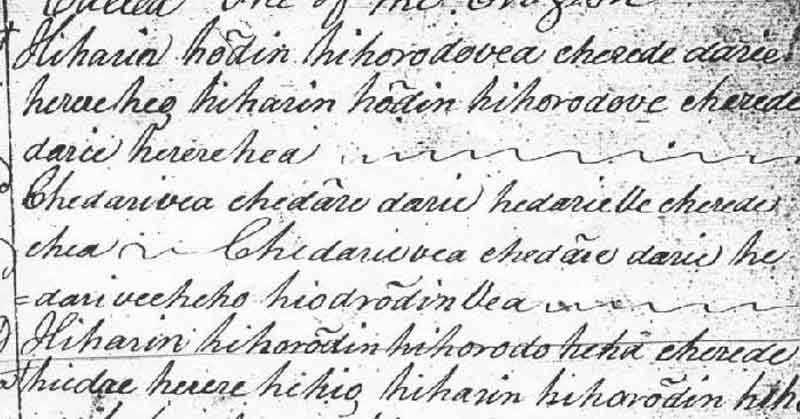 one of the
Hiharin hōdin hihorodovea cherede darie
hereheo hiharin hōdin hihorodove cherede
darie hererehea
Chedarivea chedāre darie hedarieVe cherede
chea Chedarievea chedāre darie he
=dariveeheho hiodrōdinVea
Hiharin hihorōdinhihorodo hehu cherede
hiedae herere hihio hiharin hihorōdin hih